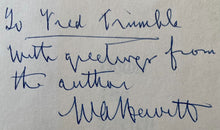 To Fred Trimble
With greetings from
the author
WA Hewitt